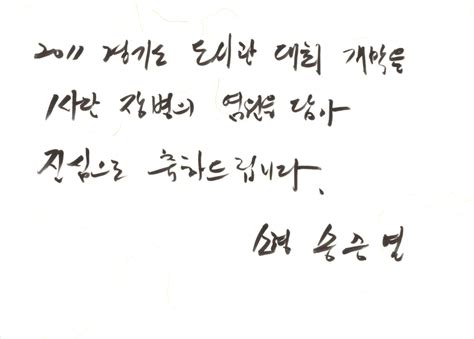 2011 경기도 도서관 대회 개막을
1사단 장병의 염원을 담아
진심으로 축하드립니다.
소령 송승열